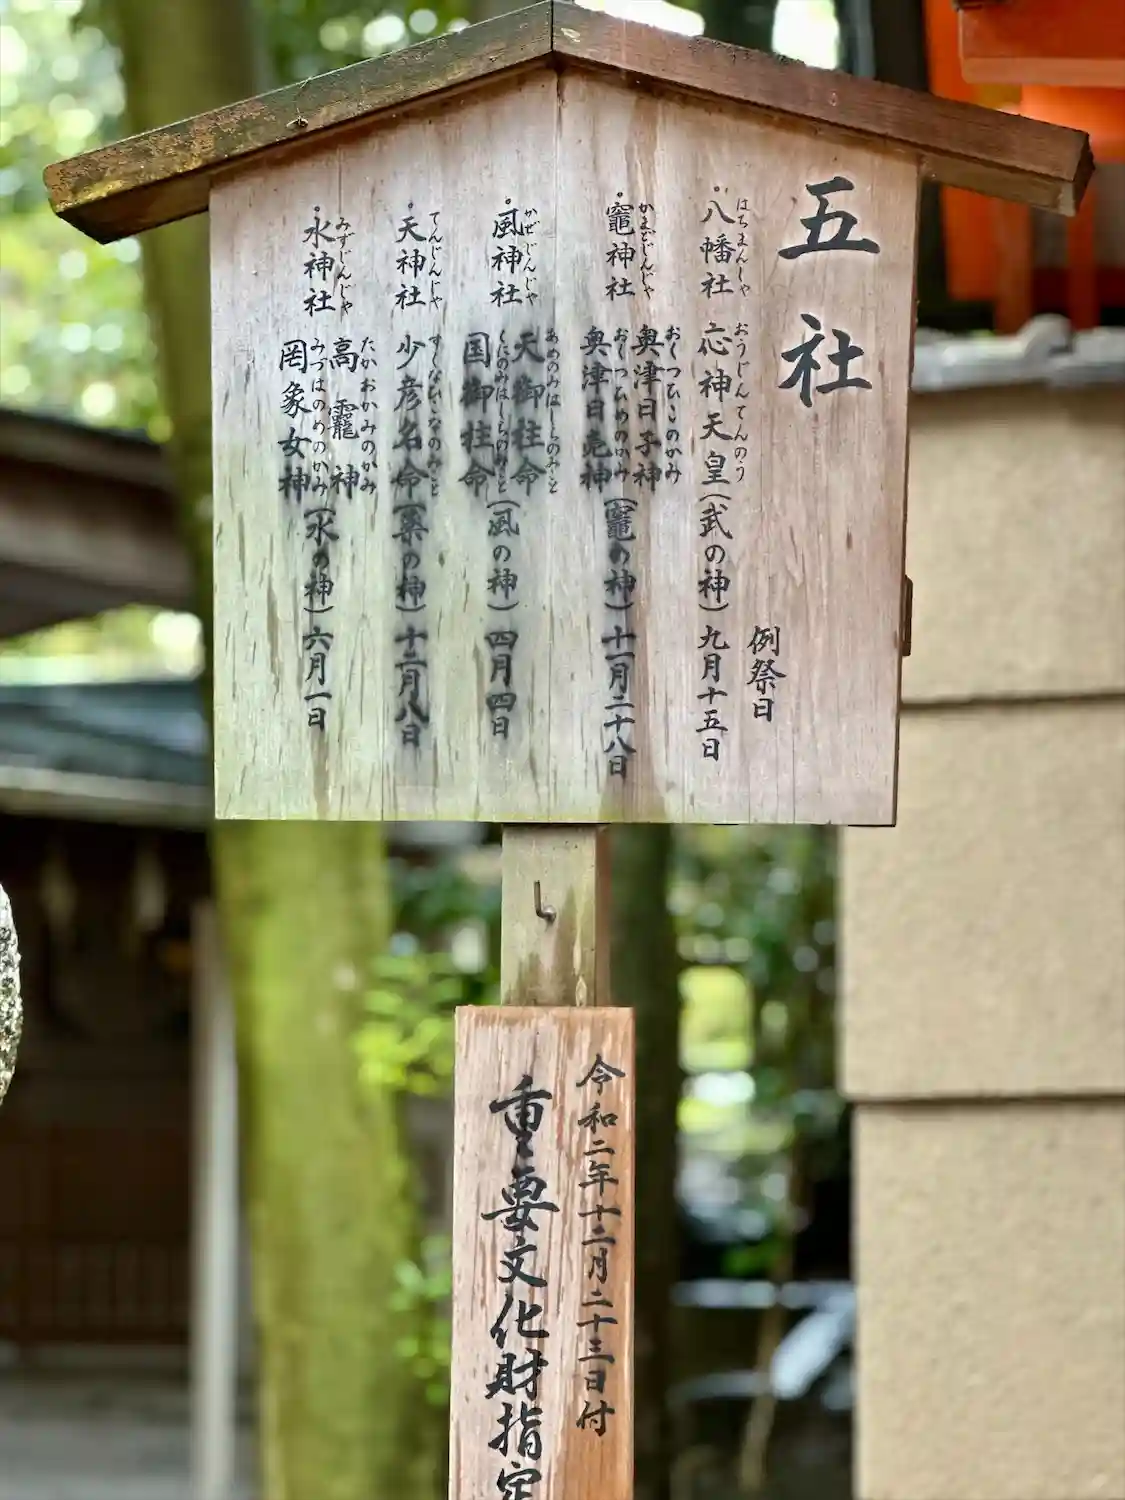 五社
例祭日
・八幡社 応神天皇(武の神) 九月十五日
はちまんしゃ おうじんてんのう
・竈神社 奥津日子神 奥津日売神 (竈の神) 十一月二十八日
かまどじんじゃ おくつひこのかみ おくつひめのかみ
・風神社 天御柱命 国御柱命 (風の神) 四月四日
かぜじんじゃ あめのみはしらのみこと くにのみはしらのみこと
・天神社 少彦名命 (薬の神) 十二月八日
てんじんじゃ すくなひこなのみこと
・水神社 高龗神 罔象女神 (水の神) 六月一日
みずじんじゃ たかおかみのかみ みづはのめのかみ
令和二年十二月二十三日付
重要文化財指定